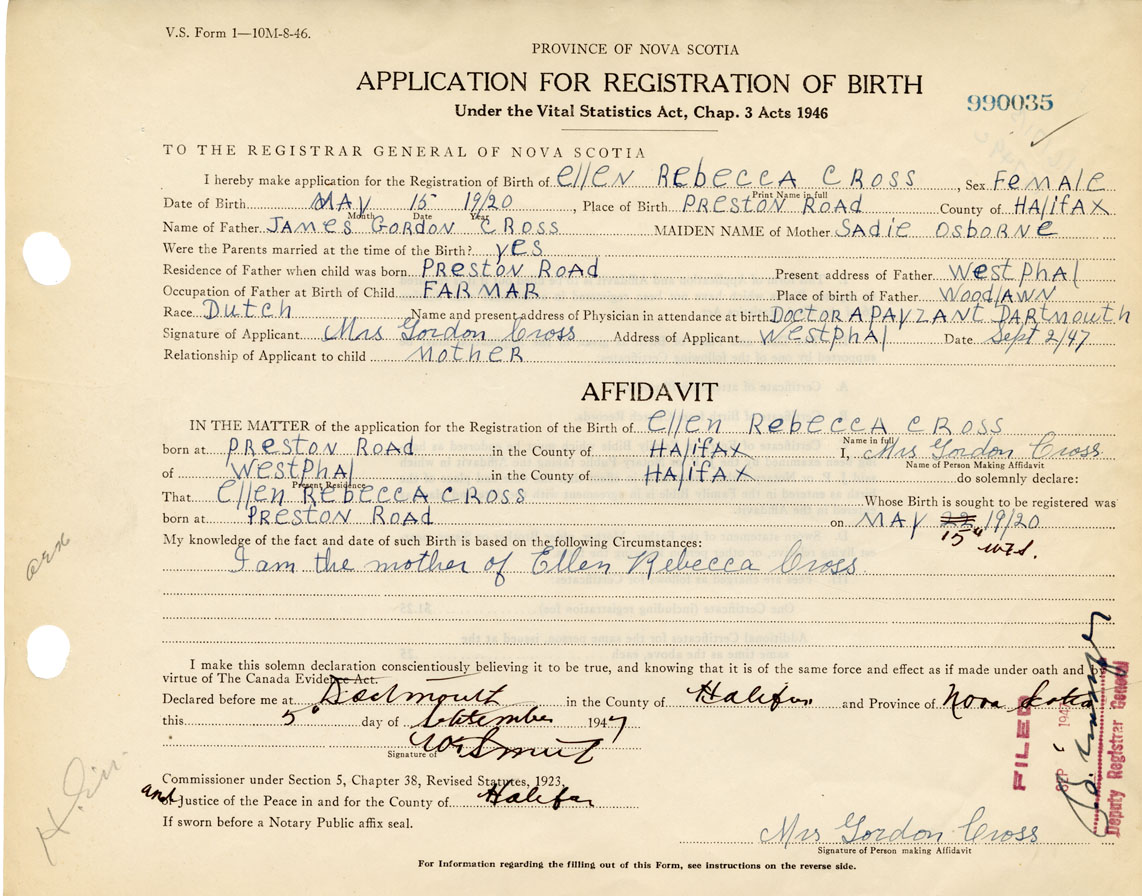 V.S. Form 1—10M-8-46.
PROVINCE OF NOVA SCOTIA
APPLICATION FOR REGISTRATION OF BIRTH
990035
Under the Vital Statistics Act, Chap. 3 Acts 1946
TO THE REGISTRAR GENERAL OF NOVA SCOTIA
I hereby make application for the Registration of Birth of Ellen Rebecca Cross, Sex Female
Print Name in full
Date of Birth MAY 15 19/20, Place of Birth Preston Road County of Halifax
Month Date Year
Name of Father James Gordon Cross MAIDEN NAME of Mother Sadie Osborne
Were the Parents married at the time of the Birth? yes
Residence of Father when child was born Preston Road Present address of Father Westphal
Occupation of Father at Birth of Child FARMAR Place of birth of Father Woodlawn
Race Dutch Name and present address of Physician in attendance at birth Doctor A PAYZANT Dartmouth
Signature of Applicant Mrs Gordon Cross Address of Applicant Westphal Date Sept 2/47
Relationship of Applicant to child Mother
AFFIDAVIT
IN THE MATTER of the application for the Registration of the Birth of Ellen Rebecca Cross
Name in full
born at Preston Road in the County of Halifax I, Mrs Gordon Cross
Name of Person Making Affidavit
of Westphal in the County of Halifax do solemnly declare:
Present Residence
That Ellen Rebecca Cross Whose Birth is sought to be registered was
born at Preston Road on MAY 22 19/20
15" W.F.S.
My knowledge of the fact and date of such Birth is based on the following Circumstances:
I am the mother of Ellen Rebecca Cross
I make this solemn declaration conscientiously believing it to be true, and knowing that it is of the same force and effect as if made under oath and by
virtue of The Canada Evidence Act.
Declared before me at Dartmouth in the County of Halifax and Province of Nova Scotia
this 5" day of September 1947
Signature of
Commissioner under Section 5, Chapter 38, Revised Statutes, 1923,
and or Justice of the Peace in and for the County of Halifax
If sworn before a Notary Public affix seal.
Mrs Gordon Cross
Signature of Person making Affidavit
For Information regarding the filling out of this Form, see instructions on the reverse side.
FILED
SEP
Deputy Registrar General